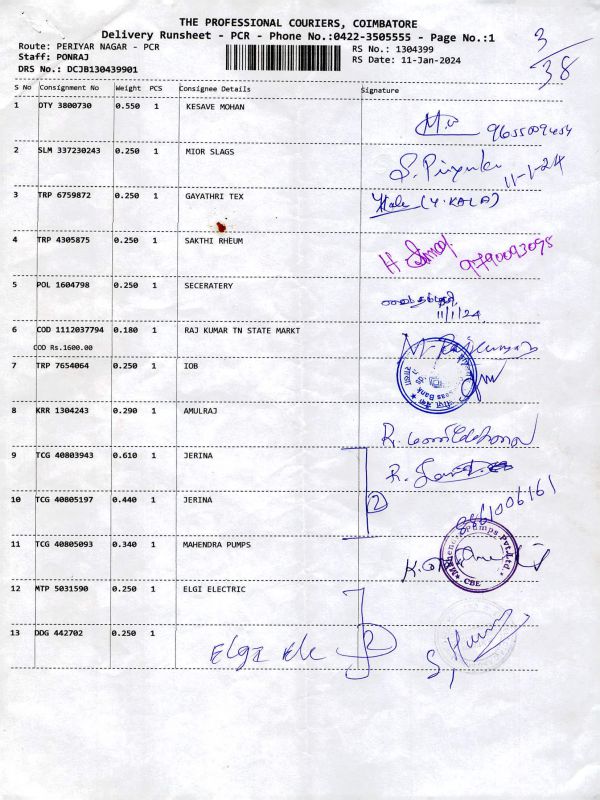 THE PROFESSIONAL COURIERS, COIMBATORE
Delivery Runsheet - PCR - Phone No.:0422-3505555 - Page No.:1
Route: PERIYAR NAGAR - PCR
RS No.: 1304399
Staff: PONRAJ
RS Date: 11-Jan-2024
DRS No.: DCJB130439901
3/38
S No Consignment No Weight PCS Consignee Details Signature
1 DTY 3800730 0.550 1 KESAVE MOHAN
9655009454
2 SLM 337230243 0.250 1 MIOR SLAGS
S. Priyanka 11-1-24
3 TRP 6759872 0.250 1 GAYATHRI TEX
Kala (Y. KALA)
4 TRP 4305875 0.250 1 SAKTHI RHEUM
9790093095
5 POL 1604798 0.250 1 SECERATERY
11/1/24
6 COD 1112037794 0.180 1 RAJ KUMAR TN STATE MARKT
COD Rs.1600.00
7 TRP 7654064 0.250 1 IOB
8 KRR 1304243 0.290 1 AMULRAJ
9 TCG 40803943 0.610 1 JERINA
10 TCG 40805197 0.440 1 JERINA
2
8861006161
11 TCG 40805093 0.340 1 MAHENDRA PUMPS
Pumps Pvt.Ltd.
CBE
12 MTP 5031590 0.250 1 ELGI ELECTRIC
13 DDG 442702 0.250 1
Elgi Ele 2